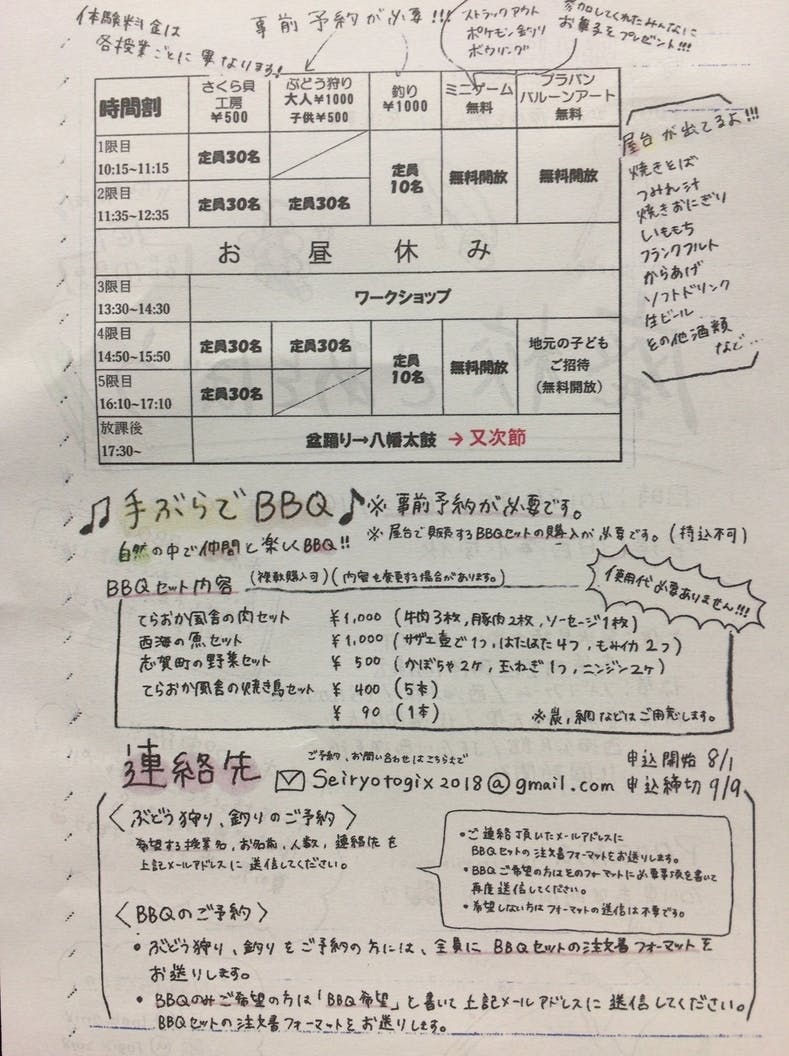 体験料金は
各授業ごとに異なります!
事前予約が必要!!!
ストラックアウト
ポケモン釣り
ボウリング
参加してくれたみんなに
お菓子をプレゼント!!!
時間割
さくら貝
工房
¥500
ぶどう狩り
大人¥1000
子供¥500
釣り
¥1000
ミニゲーム
無料
プラバン
バルーンアート
無料
1限目
10:15~11:15
定員30名
定員
10名
無料開放
無料開放
2限目
11:35~12:35
定員30名
定員30名
お昼休み
3限目
13:30~14:30
ワークショップ
4限目
14:50~15:50
定員30名
定員30名
定員
10名
無料開放
地元の子ども
ご招待
(無料開放)
5限目
16:10~17:10
定員30名
放課後
17:30~
盆踊り→八幡太鼓 → 又次節
屋台が出てるよ!!!
焼きそば
つみれ汁
焼きおにぎり
いももち
フランクフルト
からあげ
ソフトドリンク
生ビール
その他酒類
など…
♫ 手ぶらでBBQ ♪ ※事前予約が必要です。
※屋台で販売するBBQセットの購入が必要です。(持込不可)
自然の中で仲間と楽しくBBQ!!
使用代必要ありません!!!
BBQセット内容 (複数購入可)(内容を変更する場合があります。)
てらおか風舎の肉セット ¥1,000 (牛肉3枚,豚肉2枚,ソーセージ1枚)
西海の魚セット ¥1,000 (サザエ壺で1つ,はたはた4つ,もみイカ2つ)
志賀町の野菜セット ¥500 (かぼちゃ2ケ,玉ねぎ1つ,ニンジン2ケ)
てらおか風舎の焼き鳥セット ¥400 (5本)
¥90 (1本) ※炭,網などはご用意します。
連絡先
ご予約、お問い合わせはこちらまで
Seiryotogix2018@gmail.com
申込開始 8/1
申込締切 9/9
〈ぶどう狩り、釣りのご予約〉
希望する授業名、お名前、人数、連絡先を
上記メールアドレスに送信してください。
・ご連絡頂いたメールアドレスに
BBQセットの注文書フォーマットをお送りします。
・BBQご希望の方はそのフォーマットに必要事項を書いて
再度送信してください。
・希望しない方はフォーマットの送信は不要です。
〈BBQのご予約〉
・ぶどう狩り、釣りをご予約の方には、全員にBBQセットの注文書フォーマットを
お送りします。
・BBQのみご希望の方は「BBQ希望」と書いて上記メールアドレスに送信してください。
BBQセットの注文書フォーマットをお送りします。